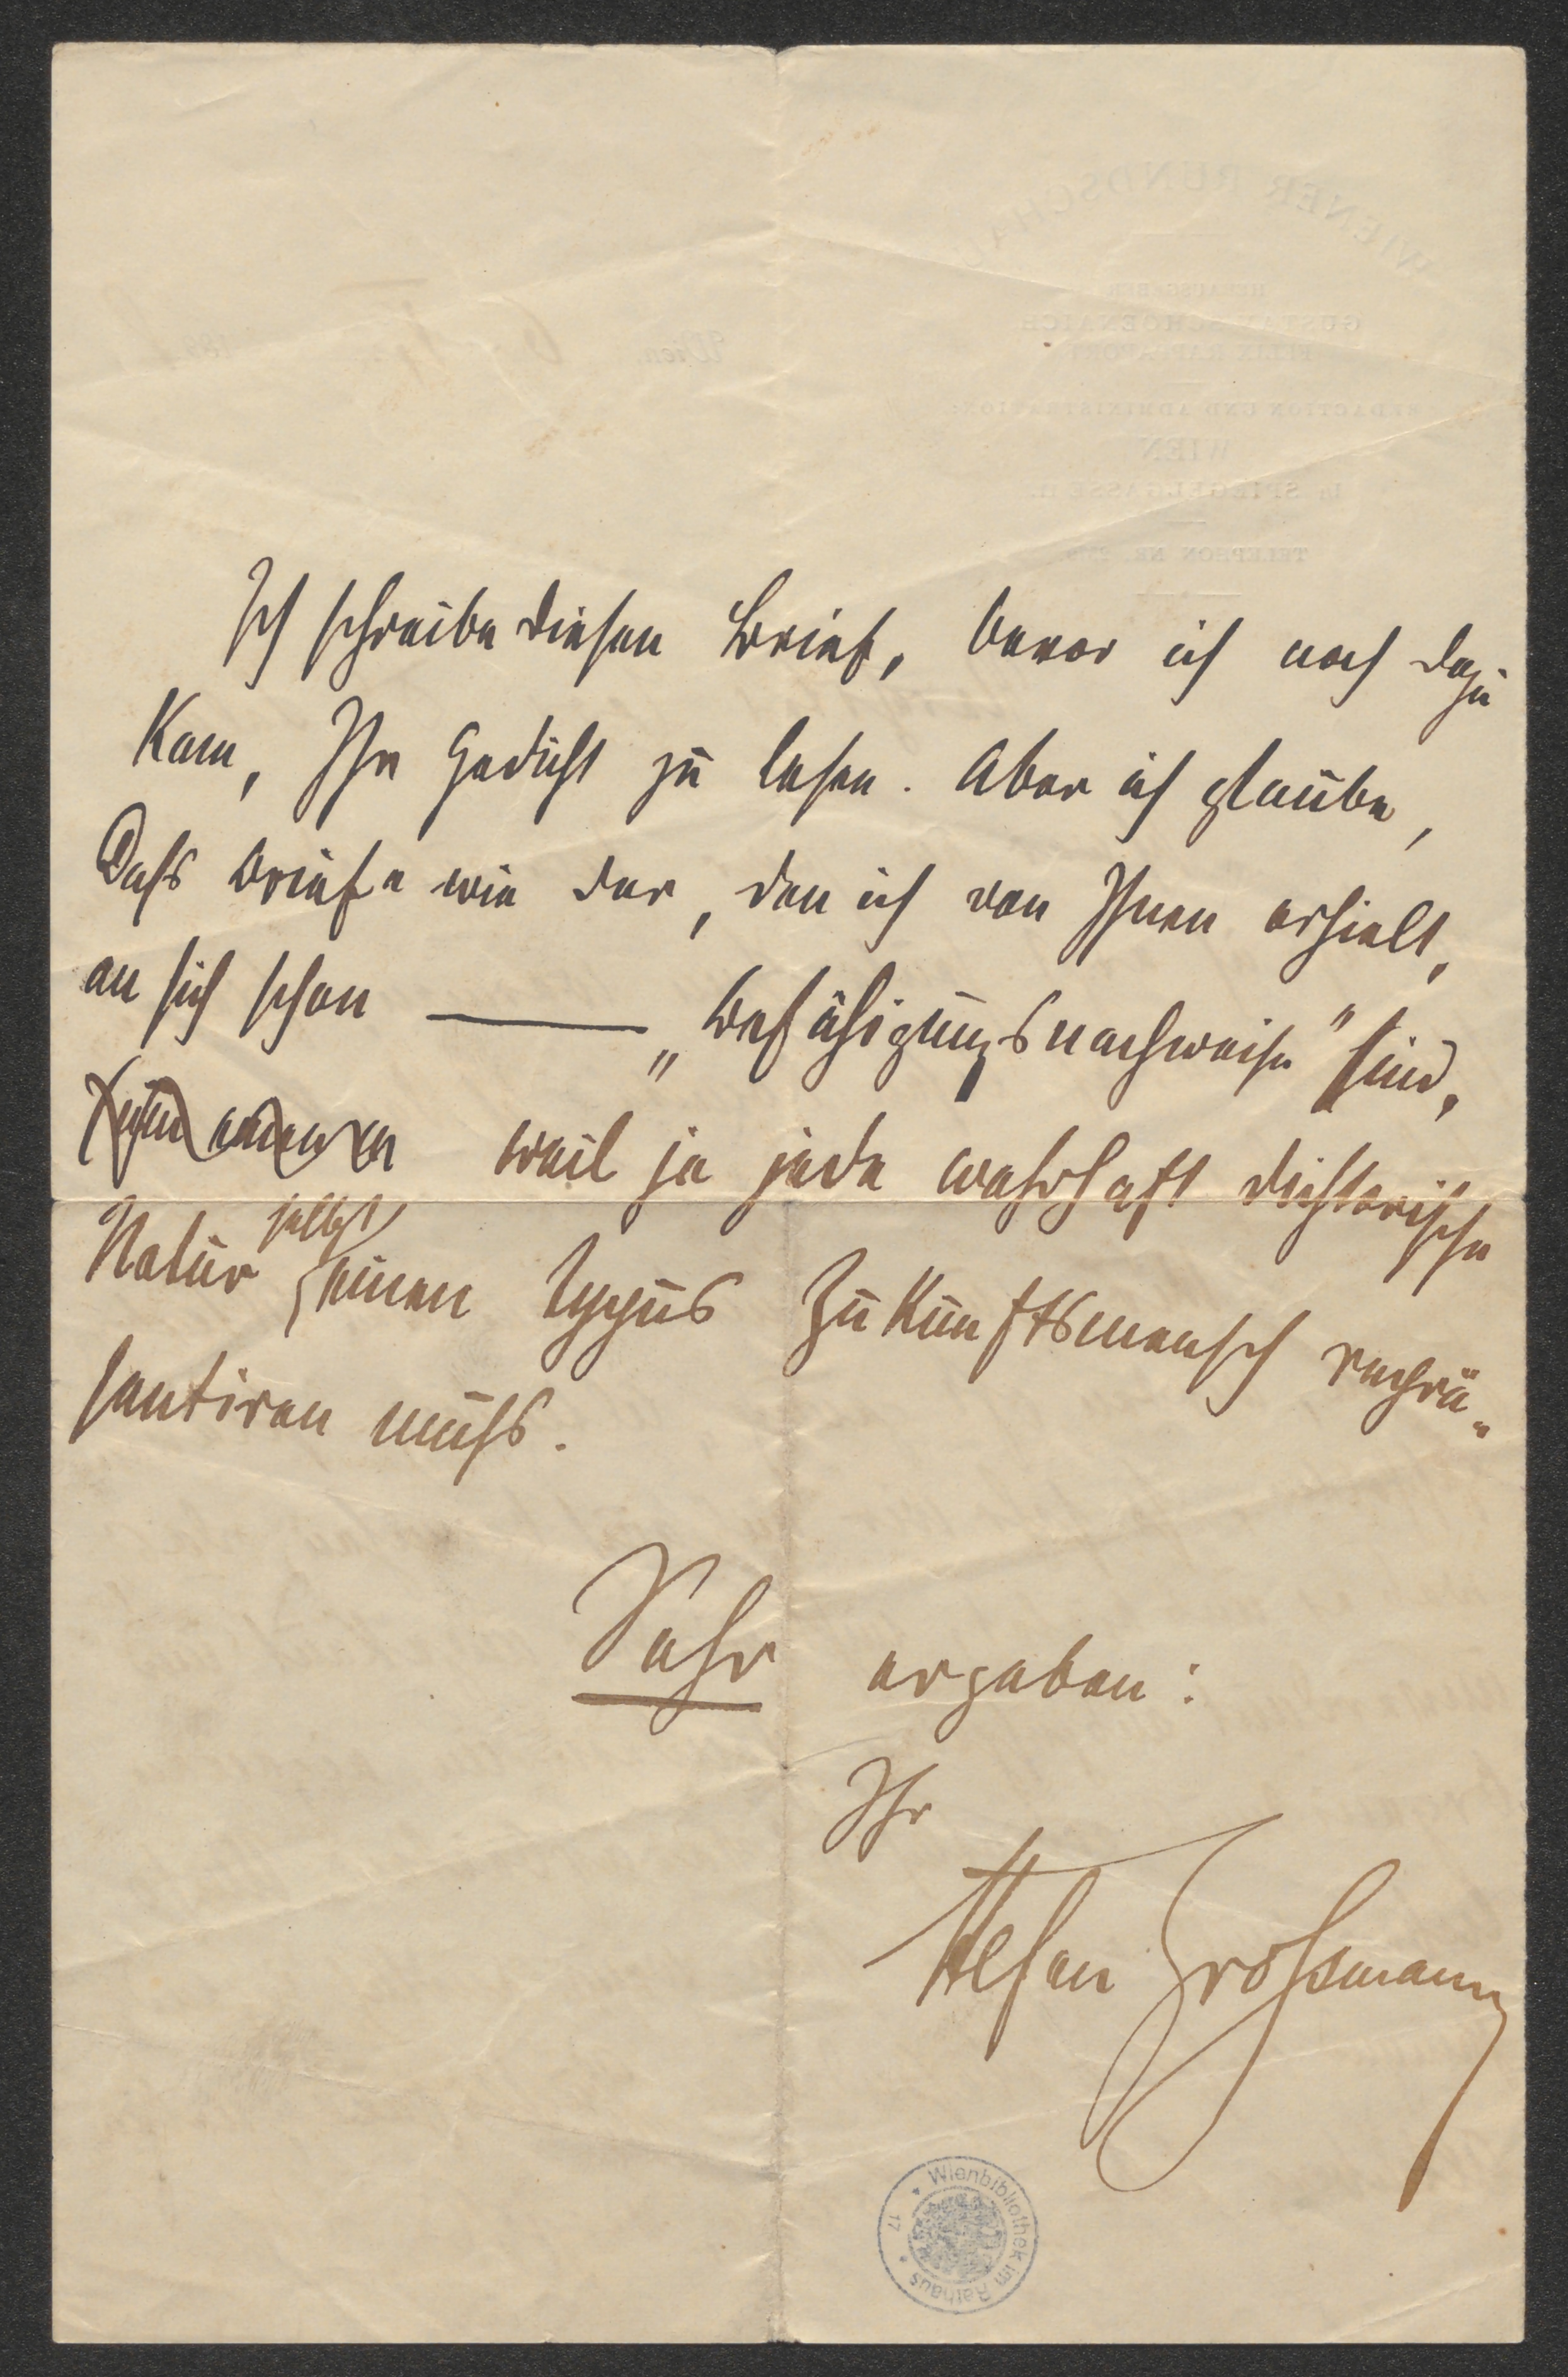 Ich schreibe diesen Brief, bevor ich noch dazu
kam, Ihr Gedicht zu lesen. Aber ich glaube,
Dass Briefe wie der, den ich von Ihnen erhielt,
an sich schon — „Befähigungsnachweise" sind,
weil ja jede wahrhaft dichterische
Natur selbst einen Typus Zukunftsmensch reprä-
sentiren muss.
Sehr ergeben:
Ihr
Stefan Großmann
Wienbibliothek im Rathaus * 17 *